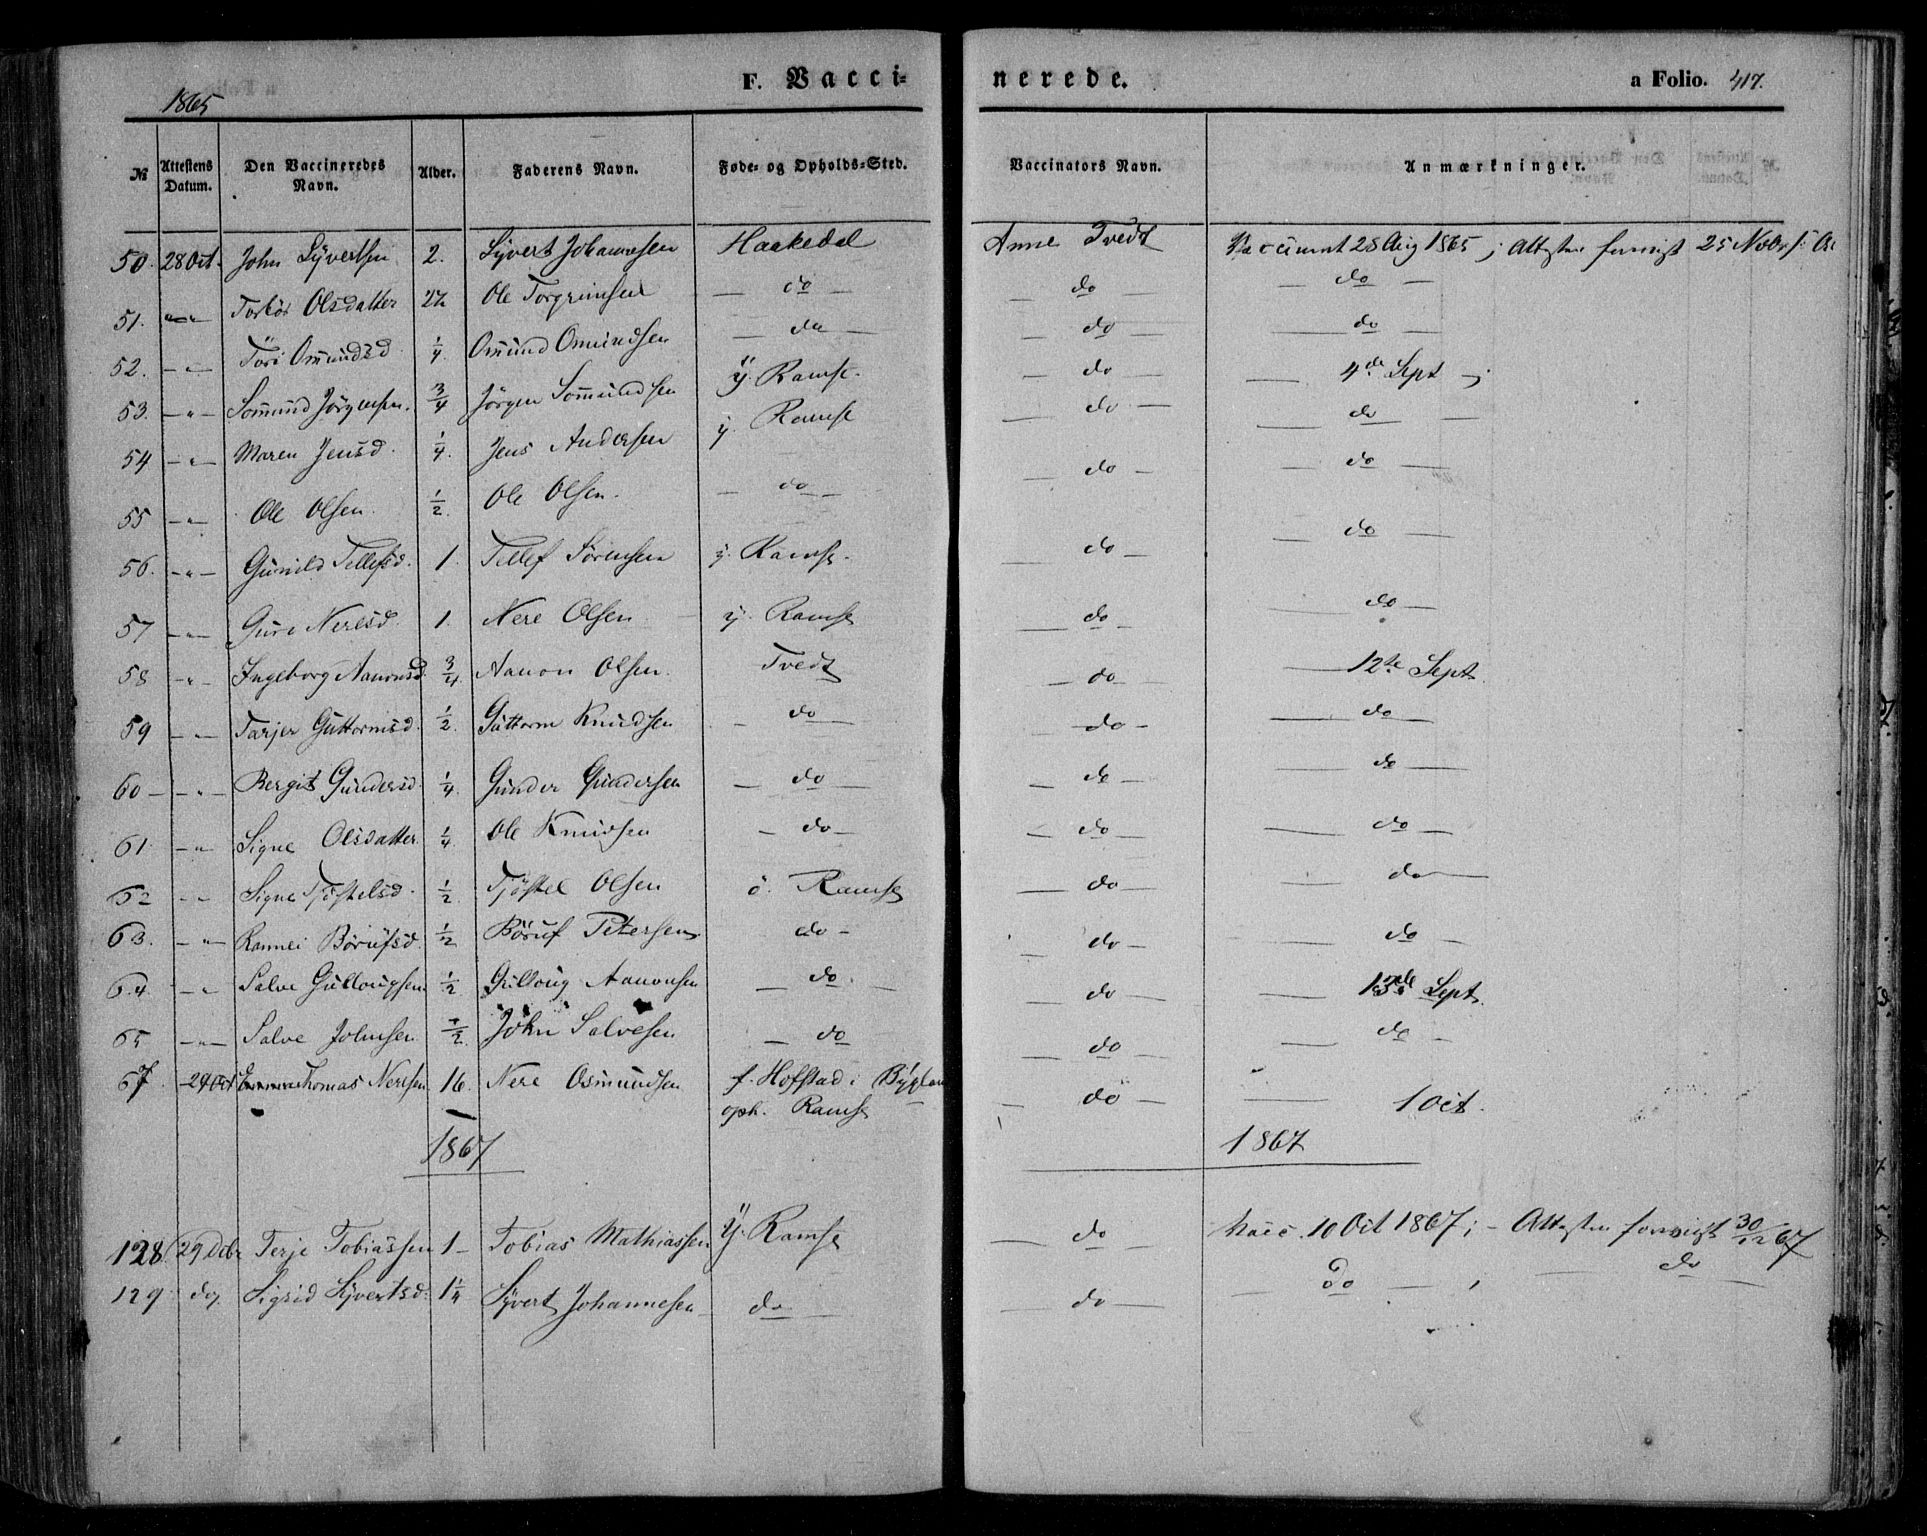 1865
F. Vacci- nerede. a Folio. 417.
№ Attestens Datum. Den Vaccineredes Navn. Alder. Faderens Navn. Føde- og Opholds-Sted. Vaccinators Navn. Anmærkninger.
50. 28 Oct. John Syvertsen 2. Syvert Johannesen Haakedal Anne Tvedt Vaccineret 28 Aug 1865; Attesten forevist 25 Novbr f. Os
51. — " — Torbør Olsdatter Ole Torgrimsen — do — — do — — do —
52. — " — Tori Omundsd. 1/4 Omund Omundsen — do — — do — — do —
53. — " — Sommund Jørgensen. 3/4 Jørgen Sommundsen y. Ramse. — do — — 4de Sept —
54 — " — Maren Jensd. 1/4. Jens Andersen y. Ramse — do — — do —
55 — " — Ole Olsen. 1/2. Ole Olsen. — do — — do — — do —
56. — " — Gunild Tellefsd. 1. Tellef Sørensen y. Ramse. — do — — do —
57 — " — Guro Neresd. 1. Nere Olsen y. Ramse — do — — do —
58 — " — Ingeborg Aanonsd. 3/4. Aanon Olsen. Tvedt — do — — 12te Sept.
59 — " — Tarjer Guttormsd. 1/2. Guttorm Knudsen — do — — do — — do —
60 — — " — Bergit Gundersd. 1/4. Gunder Gundersen — do — — do — — do —
61. — " Signe Olsdatter. 1/4. Ole Knudsen — do — — do — — do —
62 — " Signe Tjøstelsd. 1/2. Tjøstel Olsen ø. Ramse — do — — do —
63. — " — Rannei Børufsd. 1/2 Børuf Petersen do — — do — — do —
64. — " Salve Gullougsen 1/2 Gulloug Aanonsen — do. — — do — — 13de Sept.
65 — " — Salve Johnsen 1/2. John Salvesen — do — do — — do —
67. — 29 Oct Thomas Neresen 16. Nere Osmundsen f. Hofstad i Bygland — do — — 1 Oct.
oph. Ramse
1867 1867
128. 29 Dcbr Terje Tobiassen 1 — Tobias Mathiassen y. Ramse — do — Vacc. 10 Oct 1867; — Attesten forevist 30/12 67
129. do. Sigrid Syvertsd. 1 1/4 Syvert Johannesen — do — — do — — do — ; — do —